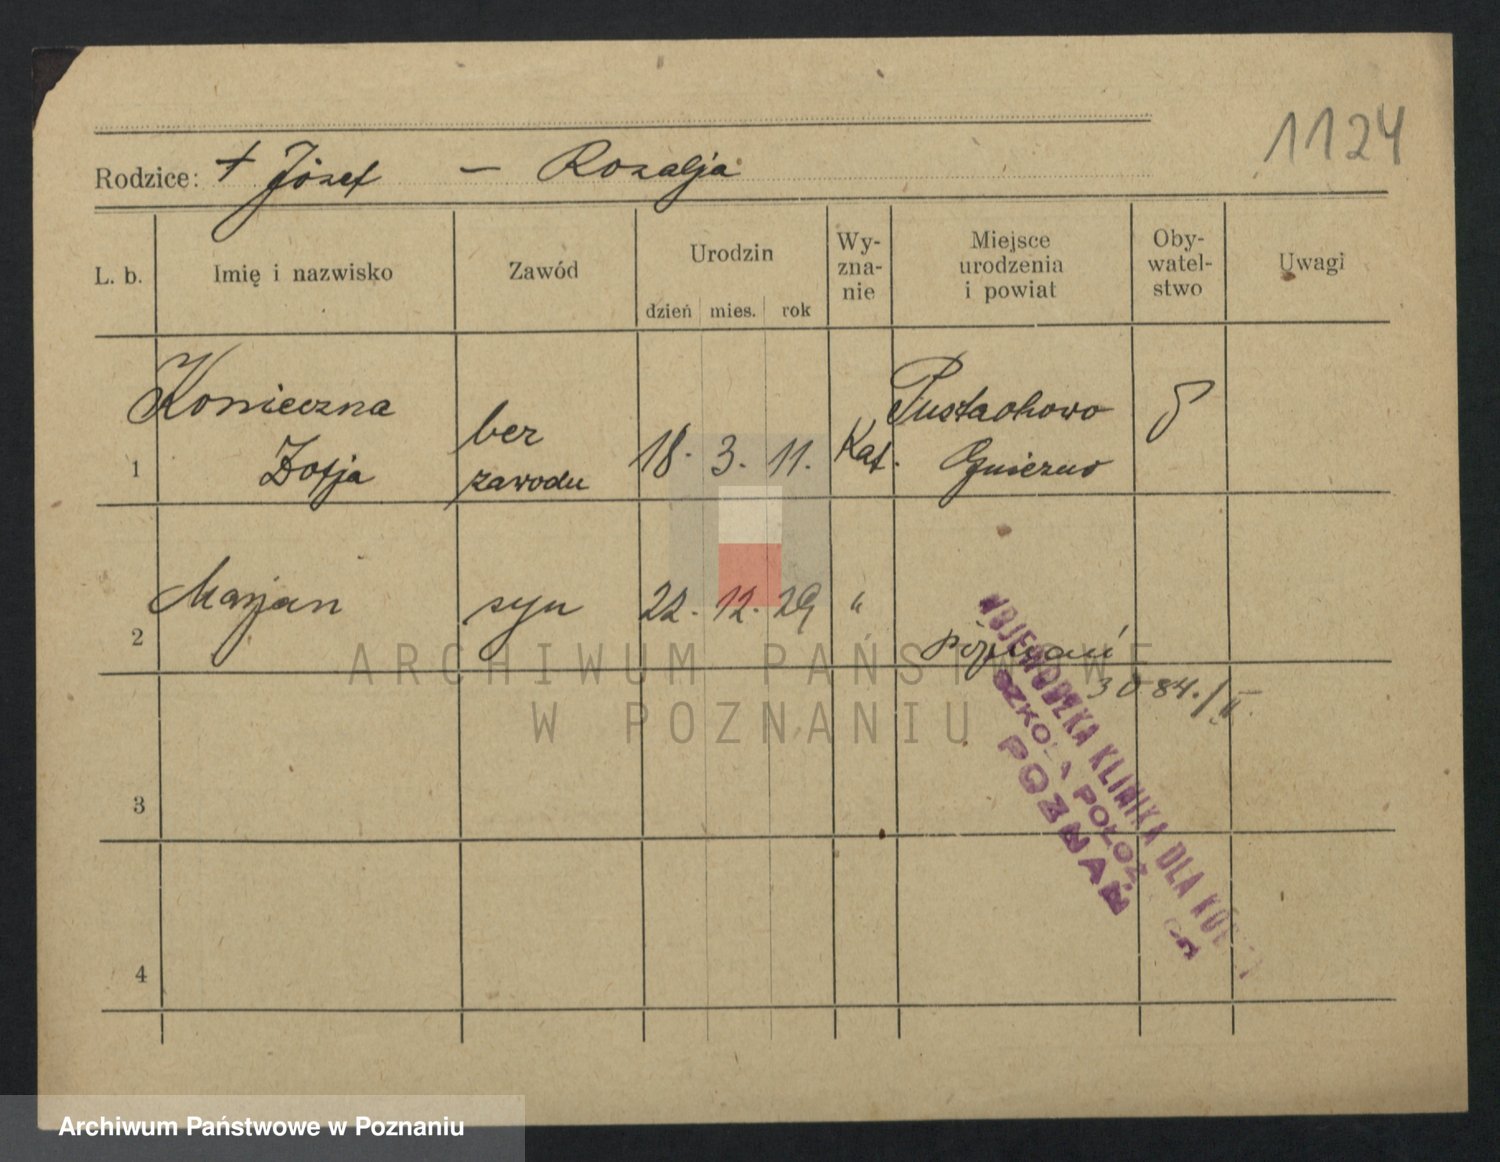 1124
Rodzice: + Józef — Rozalja
L. b. Imię i nazwisko Zawód Urodzin dzień mies. rok Wy-zna-nie Miejsce urodzenia i powiat Oby-watel-stwo Uwagi
Konieczna
Zofja
1
bez
zawodu
18. 3. 11.
Kat.
Pustachowo
Gniezno
2 Marjan syn 22. 12. 29 "
Poznań
3084./II.
WOJEWÓDZKA KLINIKA DLA KOBIET
SZKOŁA POŁOŻ
POZNAŃ
3
4
ARCHIWUM PAŃSTWOWE
W POZNANIU
Archiwum Państwowe w Poznaniu